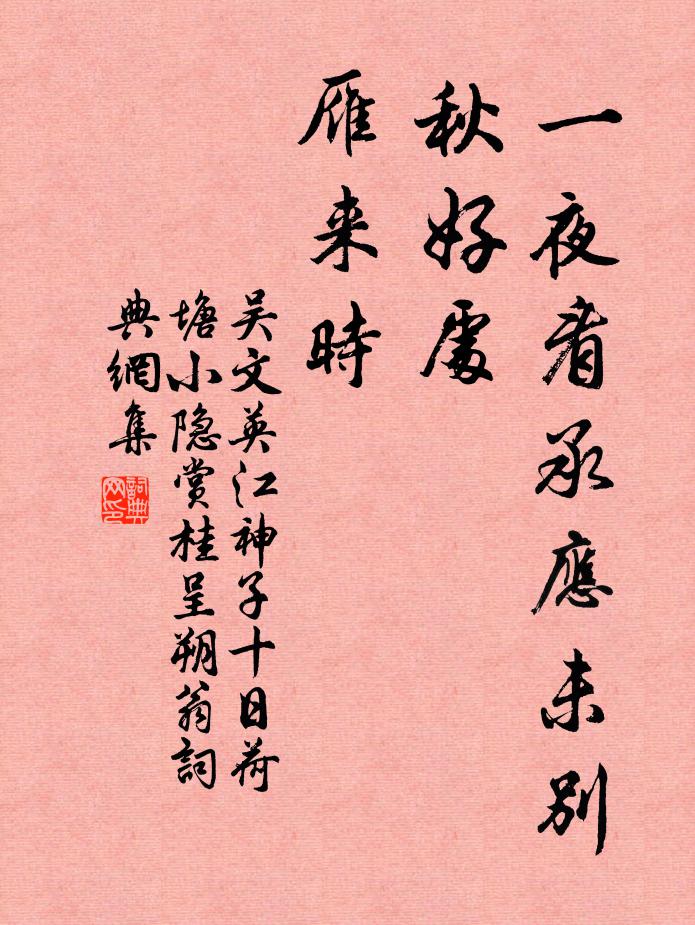 一夜看承應未别
秋好處
雁来時
吴文英江神子十日荷
塘小隐赏桂呈朔翁詞
典網集
詞典网印